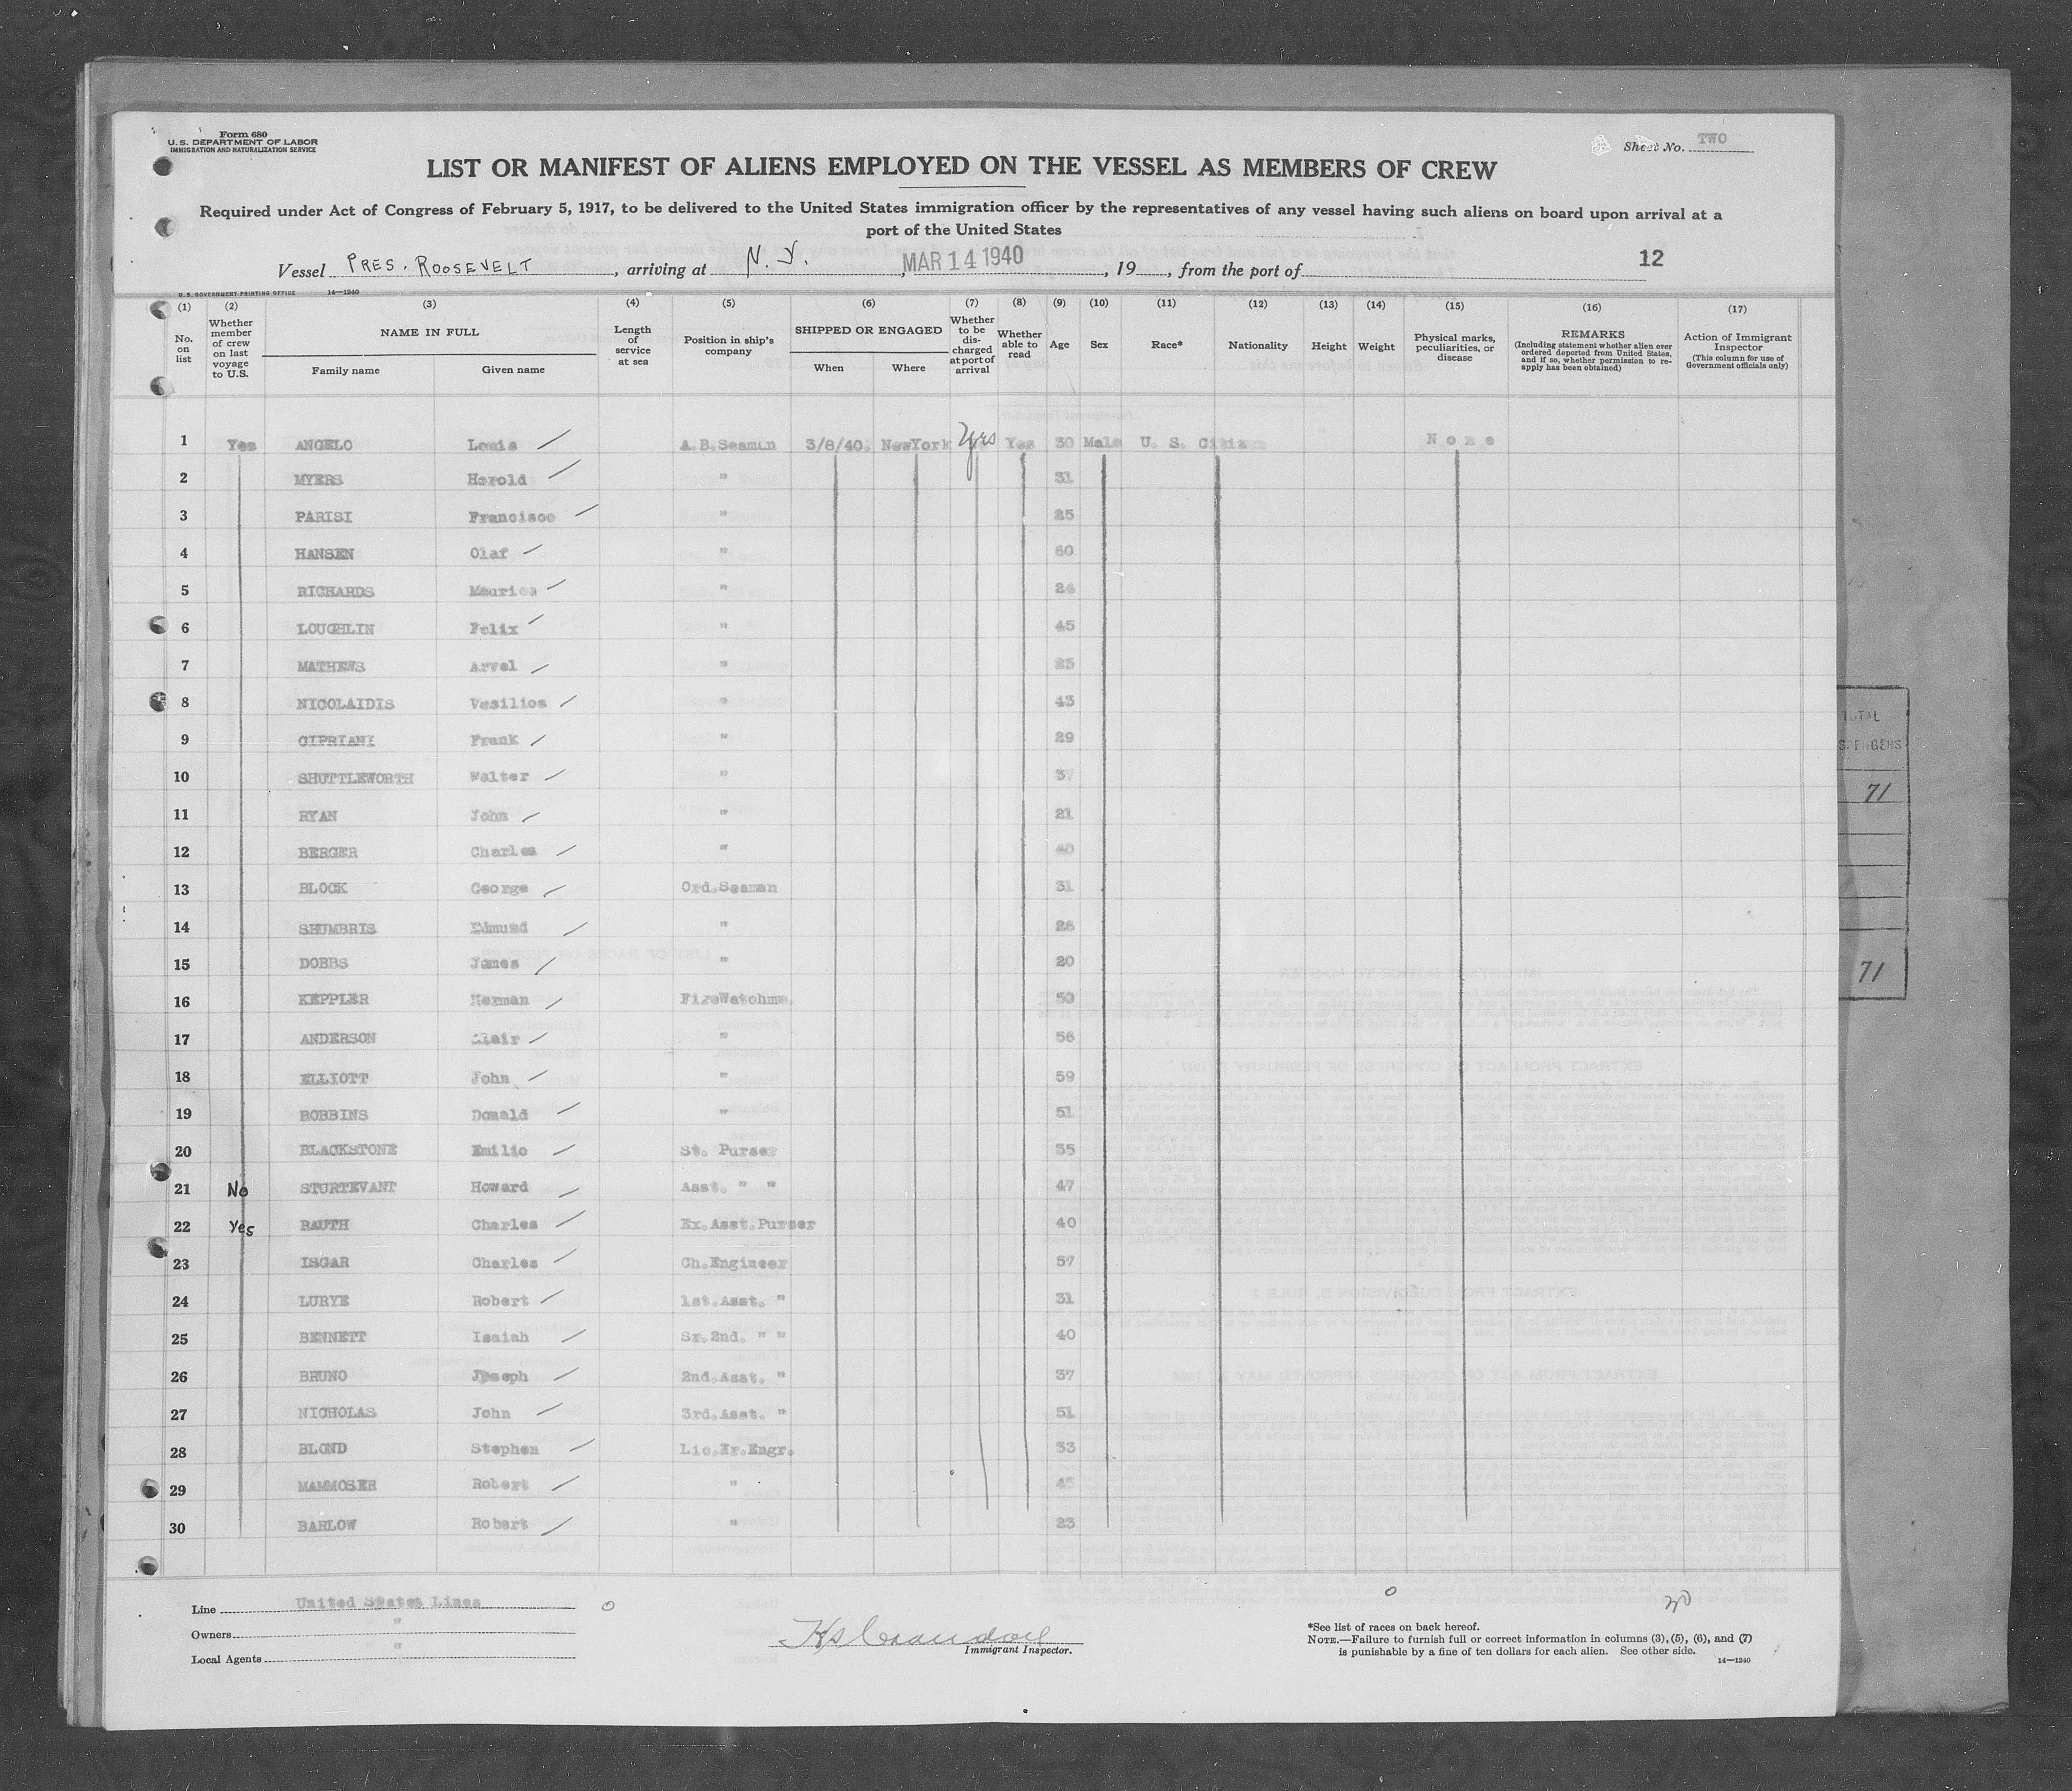 Form 680
U. S. DEPARTMENT OF LABOR
IMMIGRATION AND NATURALIZATION SERVICE
Sheet No. TWO
LIST OR MANIFEST OF ALIENS EMPLOYED ON THE VESSEL AS MEMBERS OF CREW
Required under Act of Congress of February 5, 1917, to be delivered to the United States immigration officer by the representatives of any vessel having such aliens on board upon arrival at a
port of the United States
Vessel PRES. ROOSEVELT, arriving at N. Y., MAR 14 1940, 19, from the port of 12
U. S. GOVERNMENT PRINTING OFFICE 14—1240
(1) (2) (3) (4) (5) (6) (7) (8) (9) (10) (11) (12) (13) (14) (15) (16) (17)
No. on list
Whether member of crew on last voyage to U.S.
NAME IN FULL
Family name Given name
Length of service at sea
Position in ship's company
SHIPPED OR ENGAGED
When Where
Whether to be discharged at port of arrival
Whether able to read
Age
Sex
Race*
Nationality
Height
Weight
Physical marks, peculiarities, or disease
REMARKS
(Including statement whether alien ever ordered deported from United States, and if so, whether permission to reapply has been obtained)
Action of Immigrant Inspector
(This column for use of Government officials only)
1 Yes ANGELO Louis A.B.Seaman 3/8/40. NewYork Yes Yes 30 Male U. S. Citizen None
2 MYERS Harold " 31
3 PARISI Francisco " 25
4 HANSEN Olaf " 60
5 RICHARDS Maurice " 24
6 LOUGHLIN Felix " 45
7 MATHEWS Arvel " 25
8 NICOLAIDIS Vasilios " 43
9 CIPRIANI Frank " 29
10 SHUTTLEWORTH Walter " 37
11 RYAN John " 21
12 BERGER Charles " 40
13 BLOCK George Ord.Seaman 31
14 SHUMBRIS Edmund " 26
15 DOBBS James " 20
16 KEPPLER Herman FireWatchmn. 50
17 ANDERSON Clair " 56
18 ELLIOTT John " 59
19 ROBBINS Donald " 51
20 BLACKSTONE Emilio St. Purser 55
21 No STURTEVANT Howard Asst. " " 47
22 Yes RAUTH Charles Ex.Asst.Purser 40
23 ISGAR Charles Ch.Engineer 57
24 LURYE Robert 1st.Asst. " 31
25 BENNETT Isaiah Sr.2nd. " " 40
26 BRUNO Joseph 2nd.Asst. " 37
27 NICHOLAS John 3rd.Asst. " 51
28 BLOND Stephen Lic.Jr.Engr. 33
29 MAMMOSER Robert " 45
30 BARLOW Robert " 23
TOTAL
71
71
Line United States Lines
Owners "
Local Agents "
0
0
30
Immigrant Inspector.
*See list of races on back hereof.
NOTE.—Failure to furnish full or correct information in columns (3), (5), (6), and (7)
is punishable by a fine of ten dollars for each alien. See other side.
14—1240